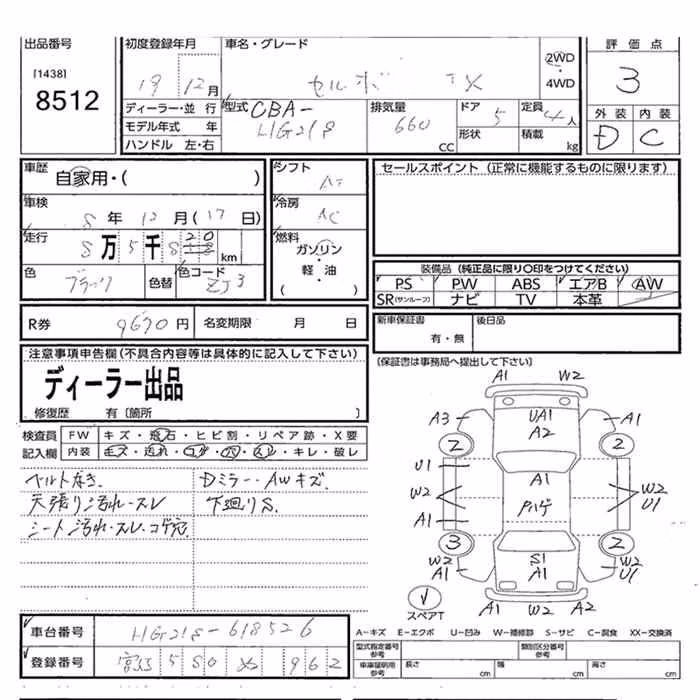 出品番号
[1438]
8512
初度登録年月
19 12月
車名・グレード
セルボ TX
2WD
・
4WD
評価点
3
外装 内装
D C
ディーラー・並行
モデル年式 年
ハンドル 左・右
型式 CBA-
HG21S
排気量
660 CC
ドア 5
形状
定員 4人
積載 kg
車歴
自家用・( )
車検
8年 12月(17日)
走行
8万5千8 20 km
色
ブラック
色替
色コード
ZJ3
シフト
AT
冷房
AC
燃料
ガソリン
・
軽・油
( )
セールスポイント (正常に機能するものに限ります)
装備品 (純正品に限り○印をつけてください)
PS PW ABS エアB AW
SR(サンルーフ) ナビ TV 本革
新車保証書
有・無
後日品
R券 9670円 名変期限 月 日
(保証書は事務局へ提出して下さい)
注意事項申告欄(不具合内容等は具体的に記入して下さい)
ディーラー出品
修復歴 有〔箇所 〕
検査員 FW キズ・飛石・ヒビ割・リペア跡・X要
記入欄 内装 キズ・汚れ・コゲ・穴・スレ・キレ・破レ
ベルトなき. Dミラー・AWキズ.
天張り汚れ・スレ 下廻りS.
シート汚れ・スレ・コゲ穴.
A1 W2
A3 UA1 A1
A2
2 2
U1 A1
W2 Pハゲ W2
A1 U1
3 2
W2 S1 W2
A1 A1 U1
A1 W2 A2
スペアT
車台番号 HG21S-618526
登録番号 580 962
A－キズ E－エクボ U－凹み W－補修跡 S－サビ C－腐食 XX－交換済
型式指定番号
参考
類別区分番号
参考
車庫証明用
参考
長さ cm 幅 cm 高さ cm